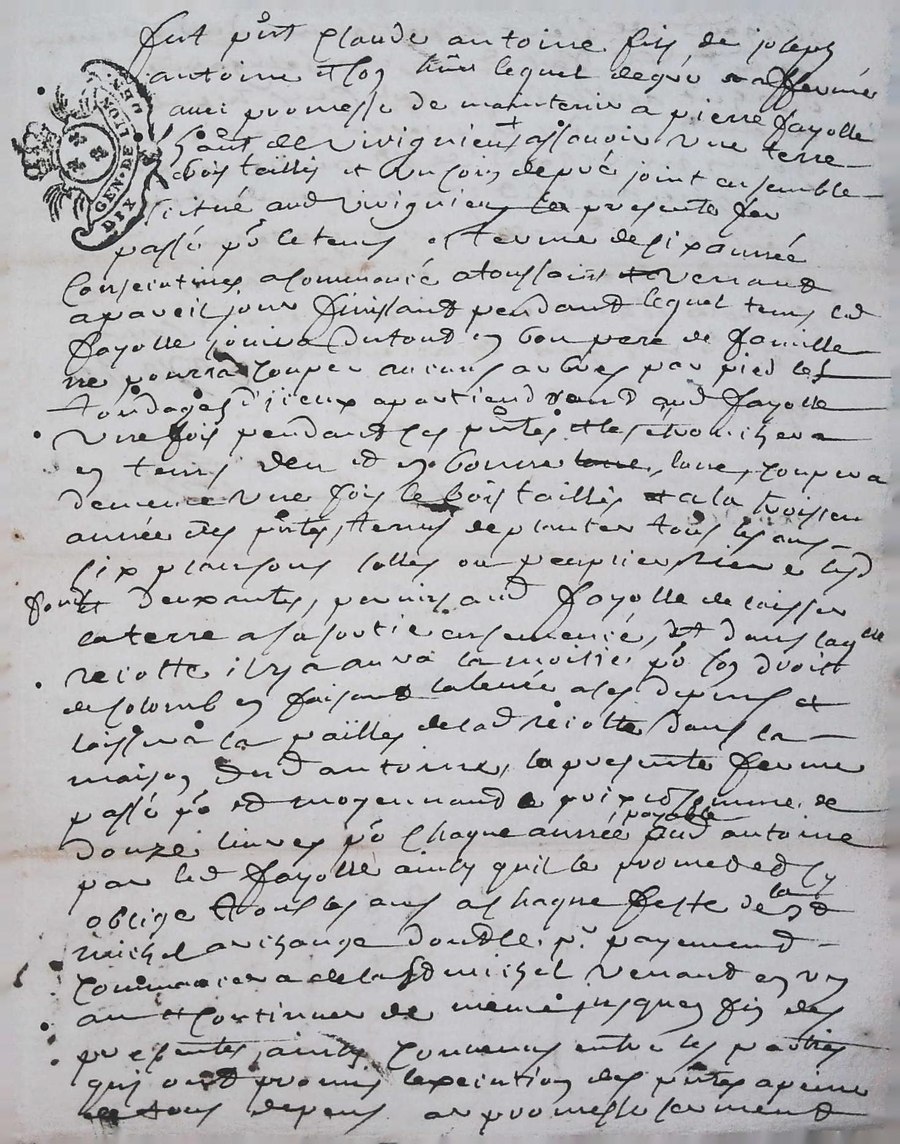 GEN · DE · LION
DIX DEN
fut pnt claude antoine fils de joseph
antoine et son heritier lequel degré a affermé
avec promesse de maintenir a pierre fayolle
hãnt de vivignieux assavoir une terre
bois taillis et un coin de pré joint ensemble
scitué aud vivignieux la presente fer
passé pr le tems et terme de six année
consecutives a commancé a toussaint venant
a pareil jour finissant pendant lequel tems led
fayolle jouira du tout en bon pere de famille
ne pourra couper aucuns arbres par pied les
tondages d'iceux apartiendrond aud fayolle
une fois pendant les pntes
en tems deu et en bonne lune, coupera
dememe une fois le bois taillis a la troisem
année des pntes, tenus de planter tous les ans
six plansons solles ou peuplier riere lesd
fonds et deux antes, permis aud fayolle de laisser
la terre a sa sortie ensemencé, et dans laqlle
recolte il n'y aura la moitié pr son droit
de colomb en faisant la levée a ses depens et
laissera la pailles de lad recolte dans la
maison dud antoine, la presente ferme
passé pr et moyennand le prix et somme de
douze livres pr chaque année payable aud antoine
par led fayolle ainsy quil le promed et sy
oblige tous les ans a chaque feste de la St
michel archange dond le pr payemend
commancera a la St michel venand en un
an et continuer de meme jusques fin des
presentes, ainsy convenus entre les parties
quis ond promis lexecution des pntes a peine
de tous depens avec promesse serment